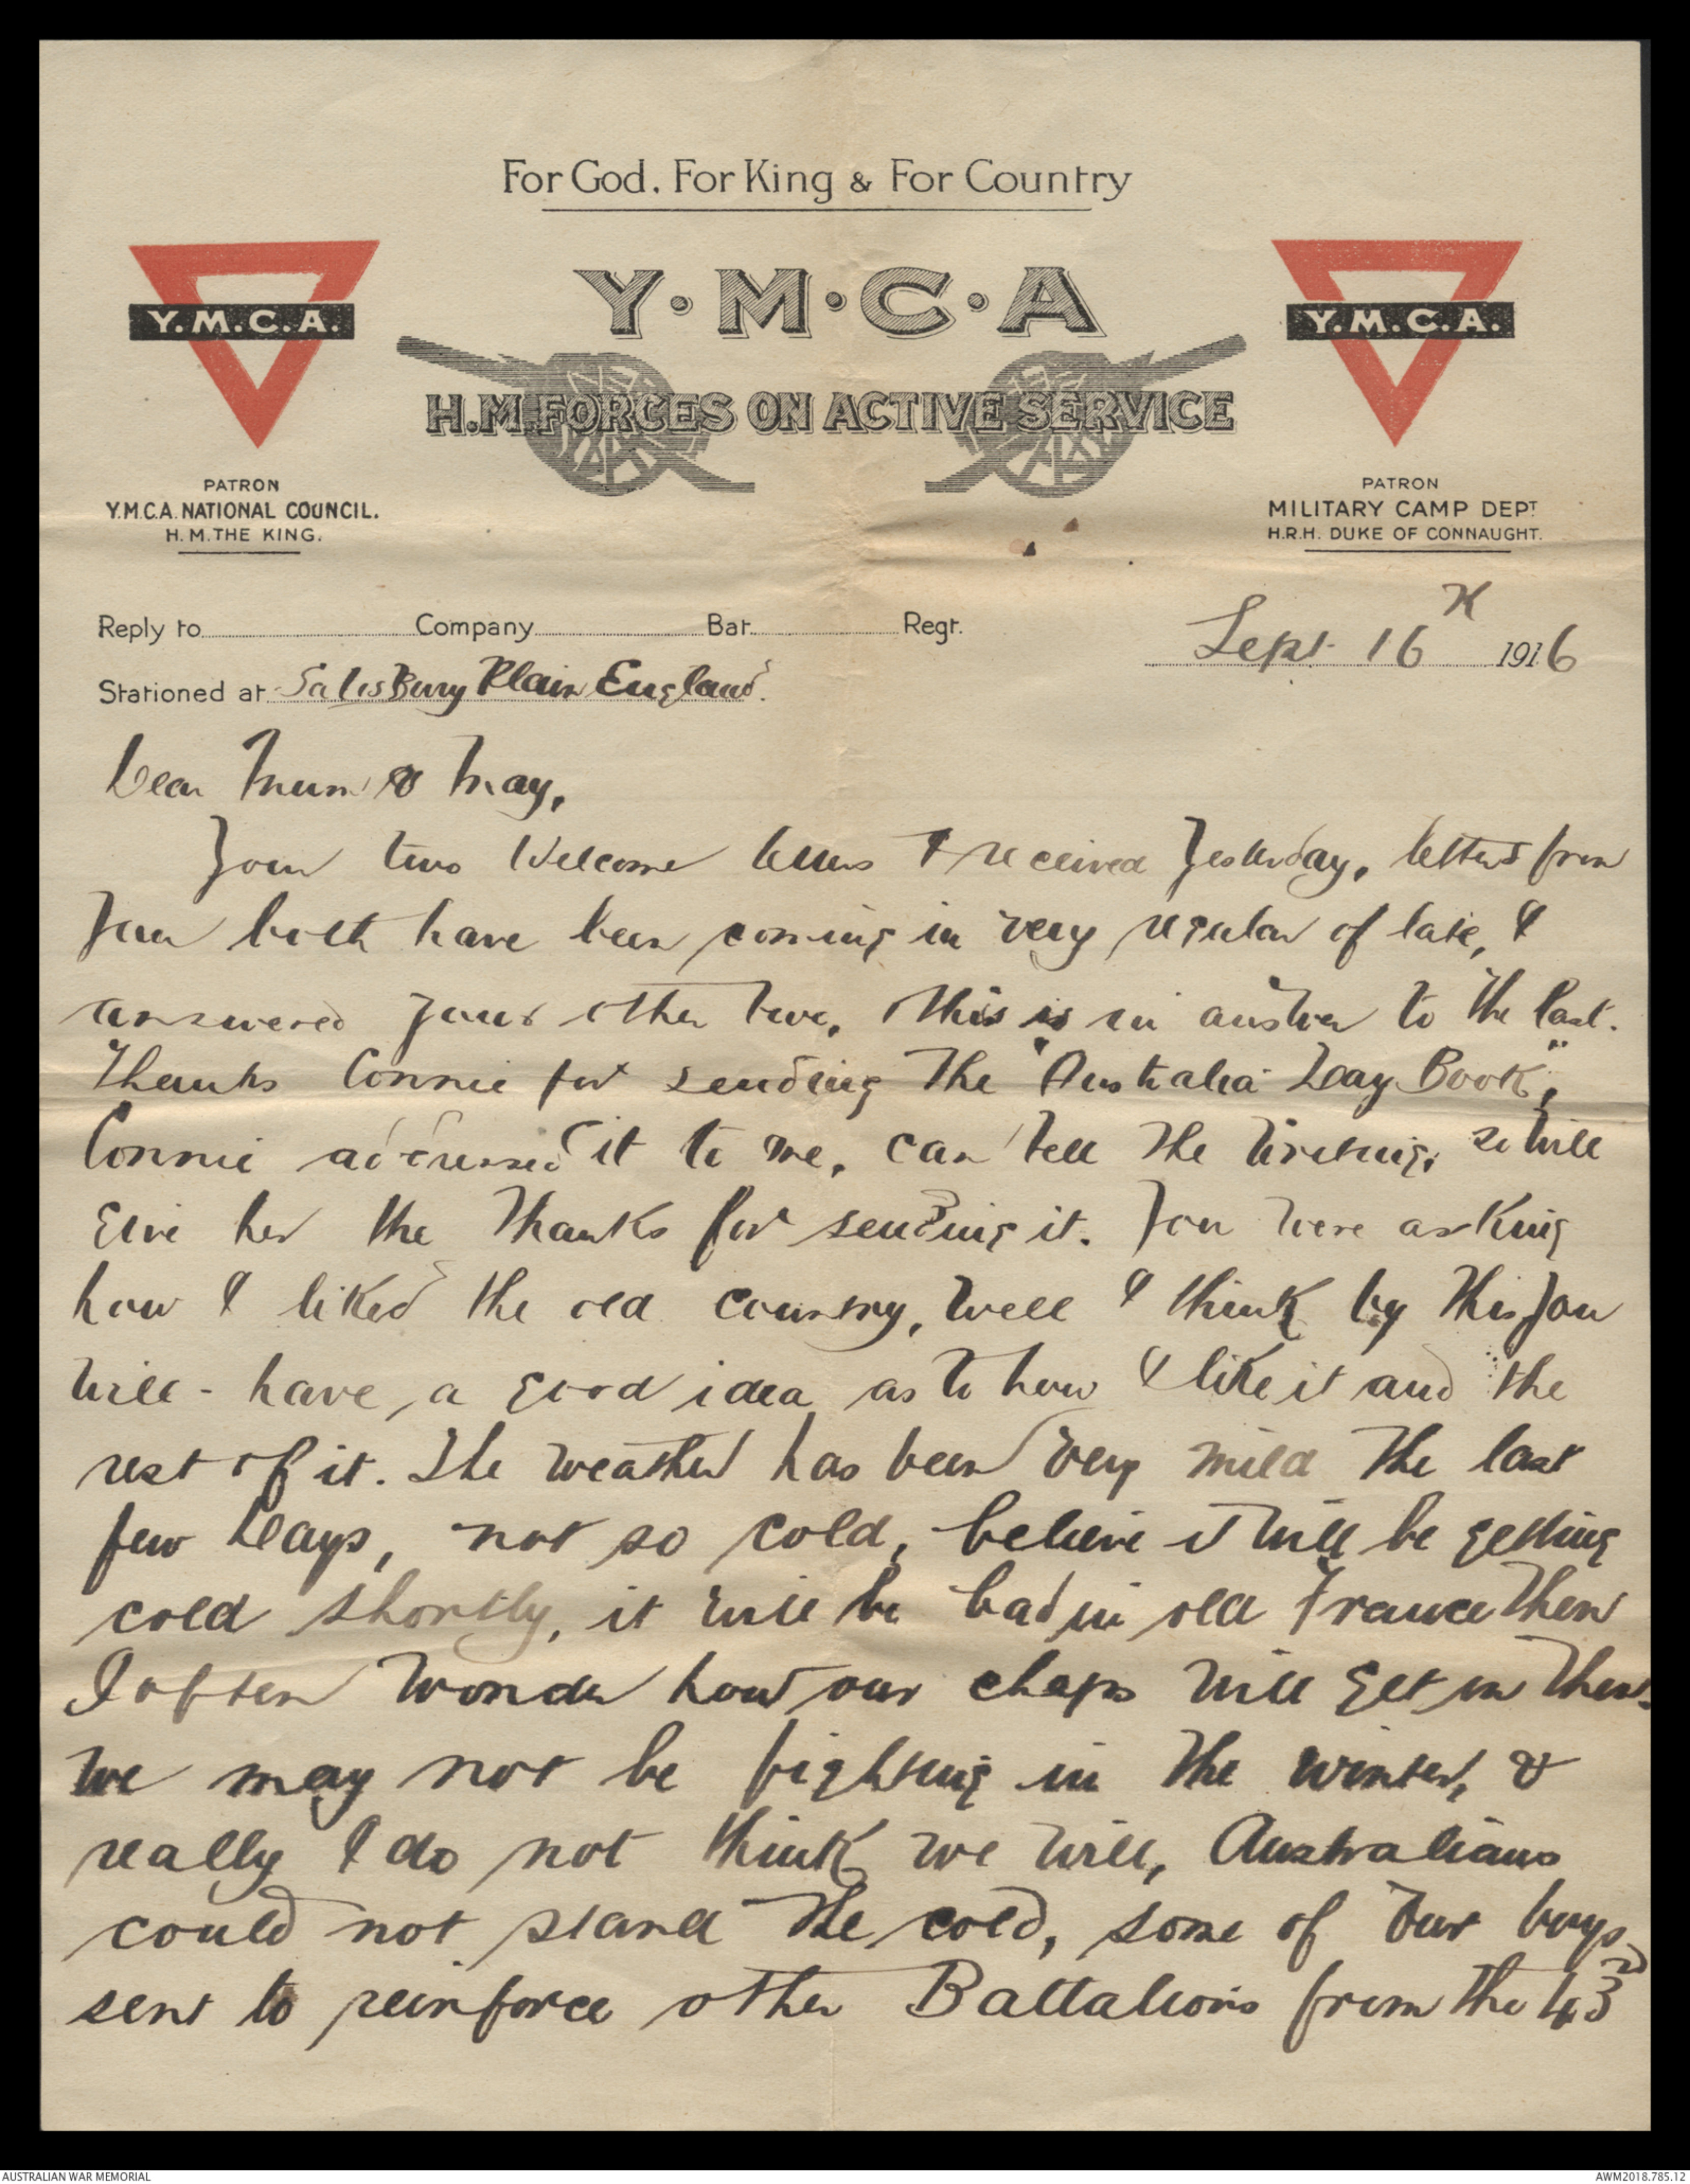 For God, For King & For Country
Y.M.C.A.
Y.M.C.A
Y.M.C.A.
H.M. FORCES ON ACTIVE SERVICE
PATRON
Y.M.C.A. NATIONAL COUNCIL.
H.M. THE KING.
PATRON
MILITARY CAMP DEPT
H.R.H. DUKE OF CONNAUGHT.
Reply to Company Bat. Regt.
Sept. 16th 1916
Stationed at Salisbury Plain England.
Dear Mum & May,
Your two Welcome letters I received Yesterday, letters from
You both have been coming in very regular of late, I
answered your other two, this is in answer to the last.
Thanks Connie for sending the "Australia Day Book",
Connie addressed it to me, can tell the writing, so will
give her the thanks for sending it. You were asking
how I liked the old country, well I think by this You
will - have a good idea as to how I like it and the
rest of it. The weather has been very mild the last
few days, not so cold, believe it will be getting
cold shortly, it will be bad in old France then
I often wonder how our chaps will get on then.
we may not be fighting in the winter, &
really I do not think we will, Australians
could not stand the cold, some of our boys
sent to reinforce other Battalions from the 43rd
AUSTRALIAN WAR MEMORIAL
AWM2018.785.12